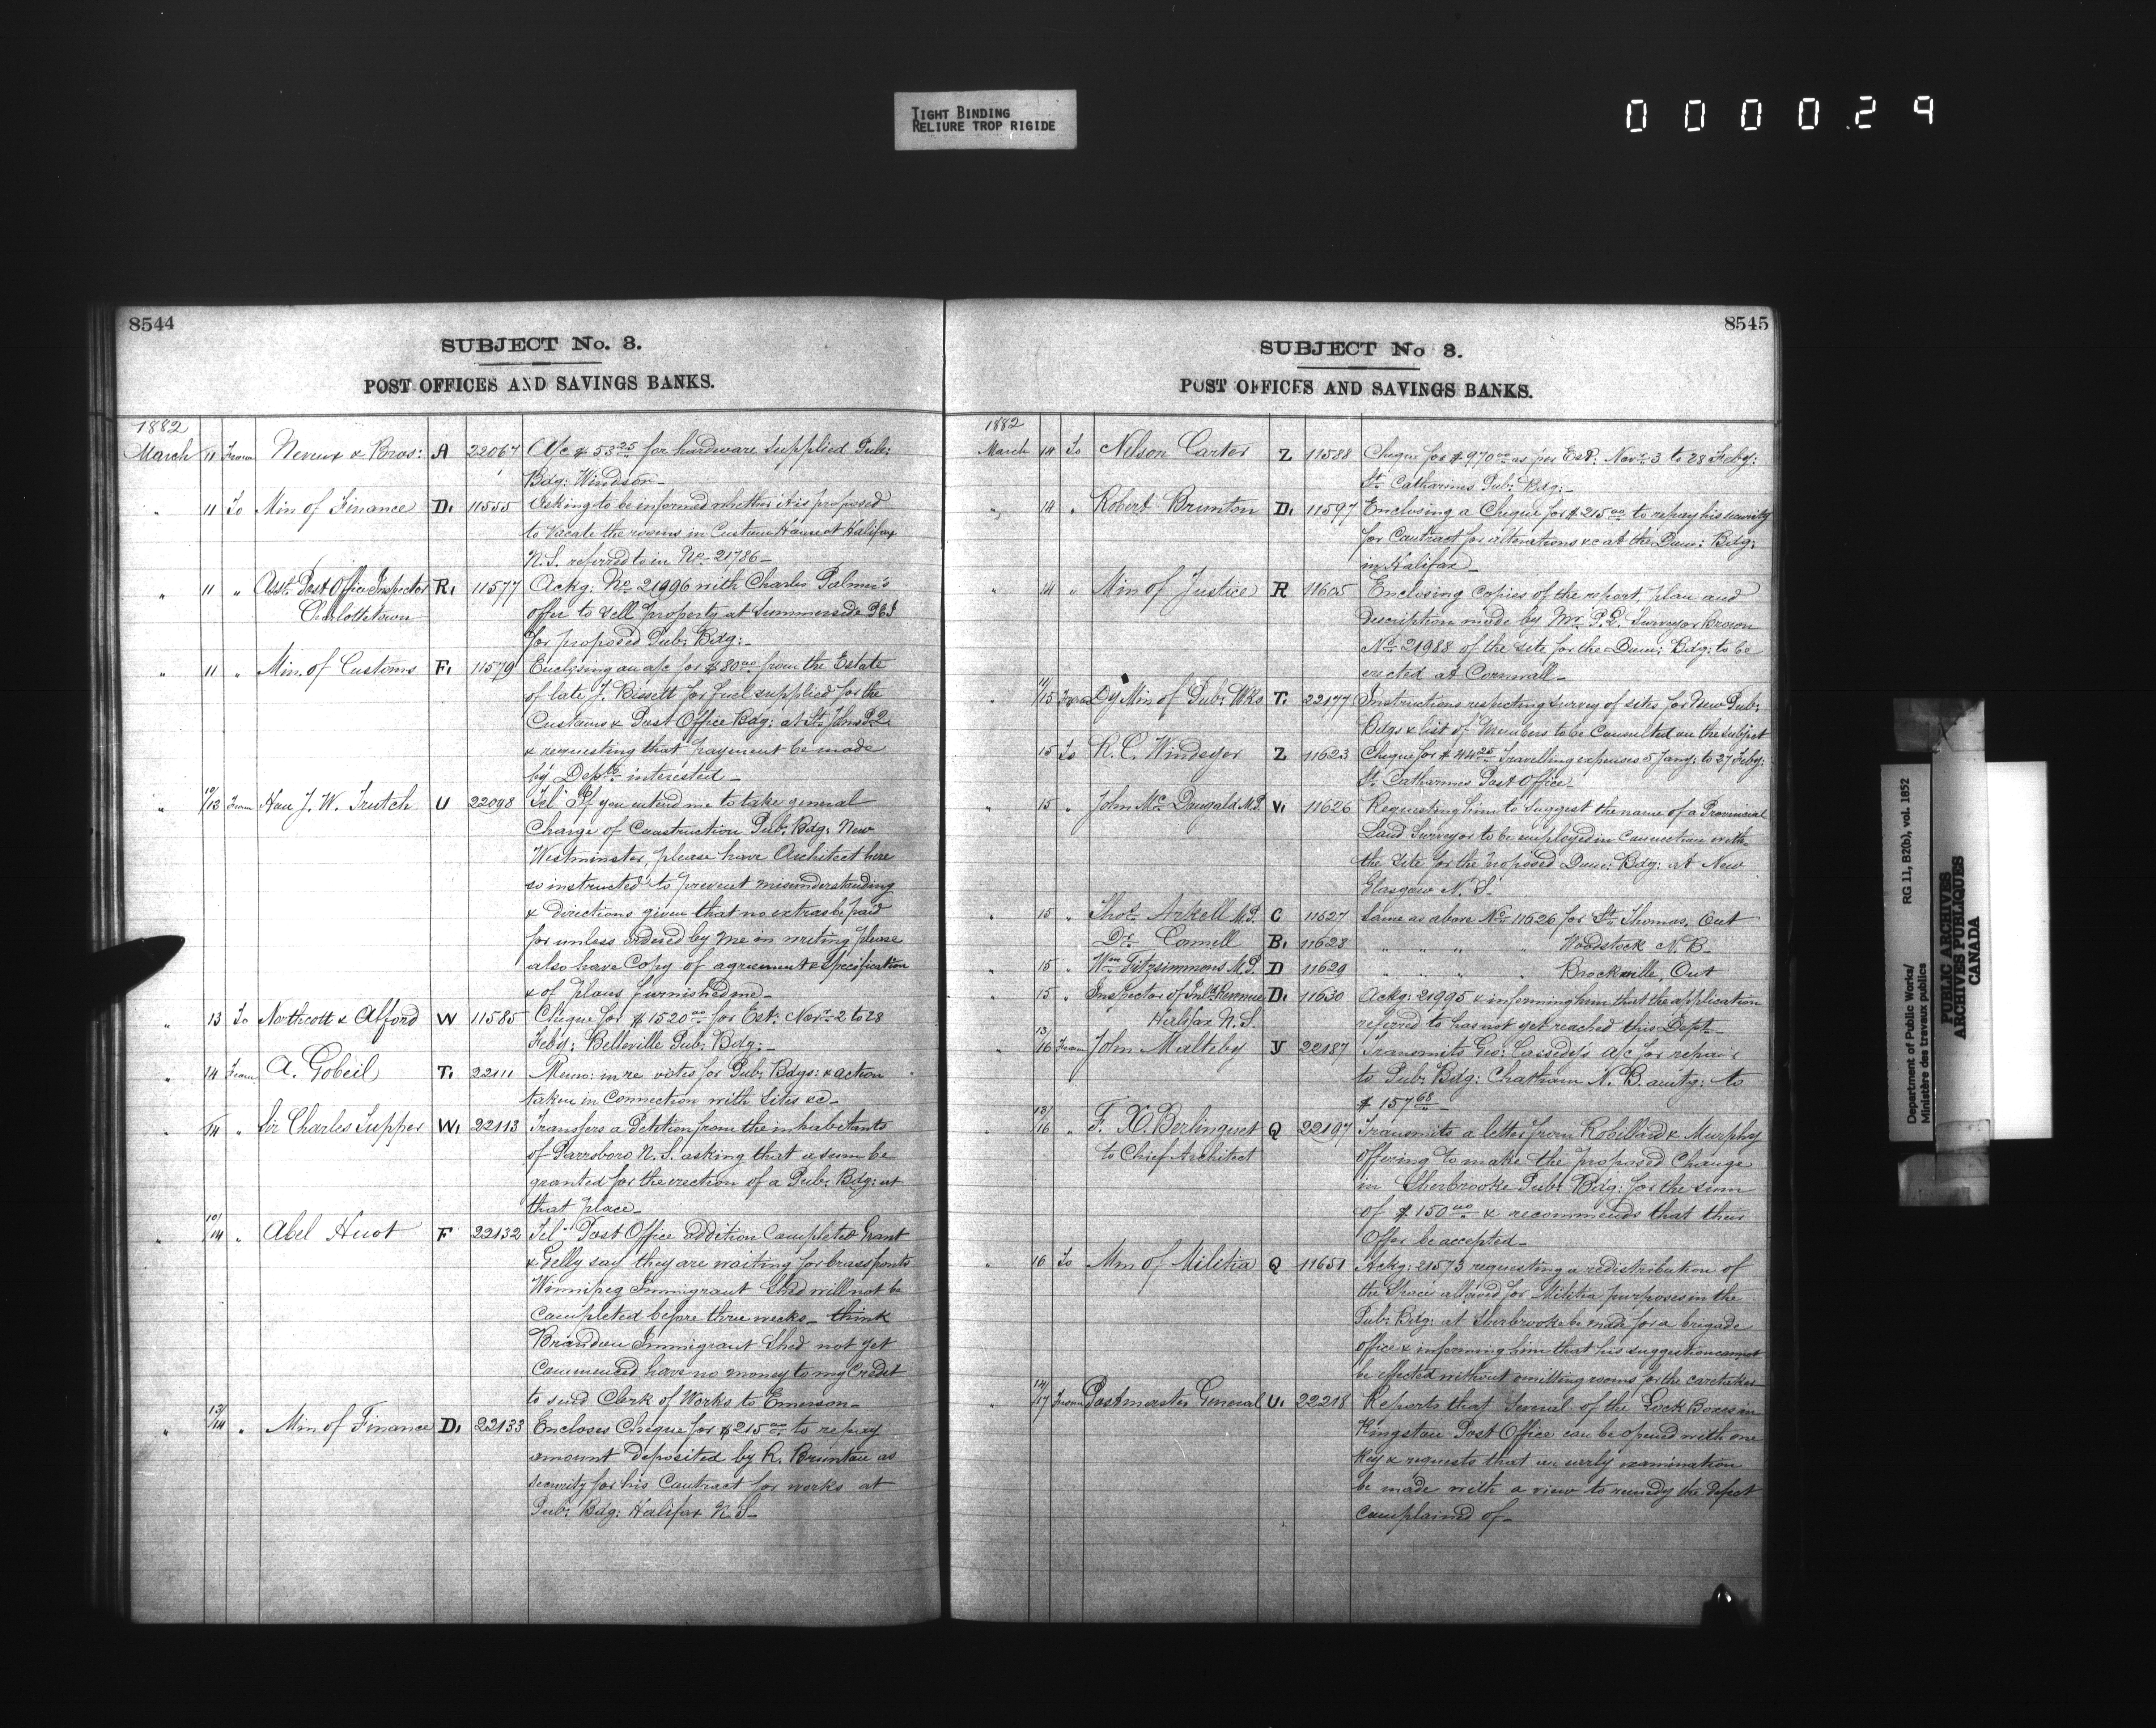 TIGHT BINDING
RELIURE TROP RIGIDE
000029
8544
SUBJECT No. 3.
POST OFFICES AND SAVINGS BANKS.
1882
March 11 From Neveux & Bros: A 22067 A/c $53.25 for hardware supplied Pub:
Bdg: Windsor_
" 11 To Min of Finance D. 11555 Asking to be informed whether it is proposed
to vacate the rooms in Custom House at Halifax
N.S. referred to in No. 21786_
" 11 " Asst. Post Office Inspector R. 11577 Ackg: No. 21996 with Charles Palmer's
Charlottetown offer to sell property at Summerside P.E.I
for proposed Pub: Bdg:_
" 11 " Min. of Customs F. 11579 Enclosing an a/c for $80.00 from the Estate
of late J. Bissett for fuel supplied for the
Customs & Post Office Bdg: at St. Johns P.Q.
& requesting that payment be made
by Depts. interested_
" 10/13 From Hon J. W. Trutch U 22098 Tel: If you intend me to take general
Charge of Construction Pub: Bdg: New
Westminster, please have Architect here
so instructed to prevent misunderstanding
& directions given that no extras be paid
for unless ordered by me in writing please
also have Copy of agreement & Specification
& of plans furnished me_
" 13 To Northcott & Alford W 11585 Cheque for $1520.00 for Est. No. 2 to 28
Feby: Belleville Pub: Bdg:_
" 14 From A. Gobeil T. 22111 Memo: in re votes for Pub: Bdgs: & action
taken in Connection with Sites &c_
" /14 " Sir Charles Tupper W. 22113 Transfers a Petition from the inhabitants
of Parrsboro N.S. asking that a sum be
granted for the erection of a Pub: Bdg: at
that place_
" 10/14 " Abel Huot F 22132 Tel: Post Office addition Completed Grant
& Gelly say they are waiting for brass fronts
Winnipeg Immigrant Shed will not be
Completed before three weeks_ think
Brandon Immigrant Shed not yet
Commenced have no money to my Credit
to send Clerk of Works to Emerson_
" 13/14 " Min of Finance D. 22133 Encloses Cheque for $215.00 to repay
amount Deposited by R. Brunton as
security for his Contract for works at
Pub: Bdg: Halifax N.S_
8545
SUBJECT No 3.
POST OFFICES AND SAVINGS BANKS.
1882
March 14 To Nelson Carter Z 11588 Cheque for $970.00 as per Est. No. 3 to 28 Feby:
St. Catharines Pub: Bdg:_
" 14 " Robert Brunton D. 11597 Enclosing a Cheque for $215.00 to repay his security
for Contract for alterations &c at the Dom: Bdg:
in Halifax_
" 14 " Min of Justice R 11605 Enclosing Copies of the report, plan and
Description made by Mr. P.L. Surveyor Brown
No. 21988 of the site for the Dom: Bdg: to be
erected at Cornwall_
" 14/15 From Dy Min of Pub: Wks T. 22177 Instructions respecting survey of sites for New Pub:
Bdgs & list of Members to be Consulted on the subject
15 To R. C. Windeyer Z 11623 Cheque for $44.25 Travelling expenses 5 Jany: to 27 Feby:
St. Catharines Post Office_
" 15 " John McDougald M.P. V. 11626 Requesting him to suggest the name of a Provincial
Land Surveyor to be employed in Connection with
the site for the proposed Dom: Bdg: at New
Glasgow N.S.
" 15 " Thos. Arkell M.P. C 11627 Same as above No. 11626 for St. Thomas. Ont
Dr. Connell B. 11628 " " " " Woodstock N.B_
" 15 " Wm Fitzsimmons M.P. D 11629 " " " " Brockville, Ont
" 15 " Inspector of Inld. Revenue D. 11630 Ackg: 21995 & informing him that the application
Halifax N.S. referred to has not yet reached this Dept_
" 13/16 From John Maltby Y 22187 Transmits Geo: Cassedy's a/c for repairs
to Pub: Bdg: Chatham N.B. amtg: to
$157.68_
" 13/16 " F. X. Berlinguet Q 22197 Transmits a letter from Robillard & Murphy
to Chief Architect offering to make the proposed Change
in Sherbrooke Pub: Bdg: for the sum
of $150.00 & recommends that their
Offer be accepted_
" 16 To Min of Militia Q 11651 Ackg: 21573 requesting a redistribution of
the space allowed for Militia purposes in the
Pub: Bdg: at Sherbrooke be made for a brigade
office & informing him that his suggestion cannot
be effected without omitting rooms for the caretaker
" 14/17 From Postmaster General U. 22218 Reports that Several of the Lock Boxes in
Kingston Post Office can be opened with one
Key & requests that an early examination
be made with a view to remedy the Defect
Complained of_
Department of Public Works/
Ministère des travaux publics
RG 11, B2(b), vol. 1852
PUBLIC ARCHIVES
ARCHIVES PUBLIQUES
CANADA